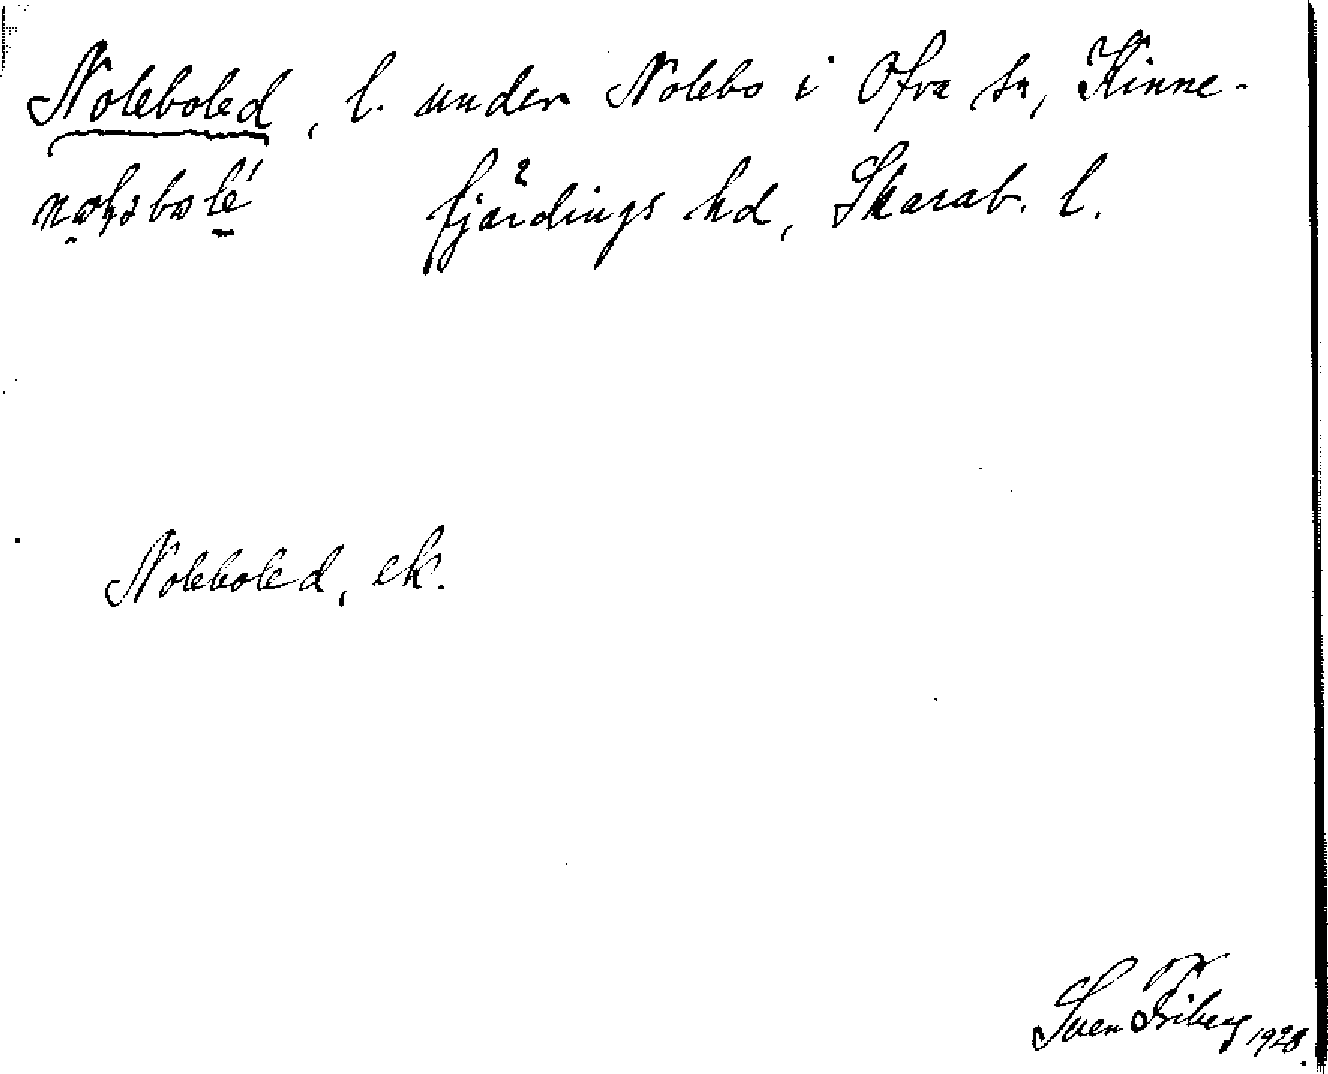 Noleboled, l. under Nolebo i Ofra sn, Kinne-
fjärdings hd, Skarab. l.
Noleboled, ek.
Sven Friberg 1928.